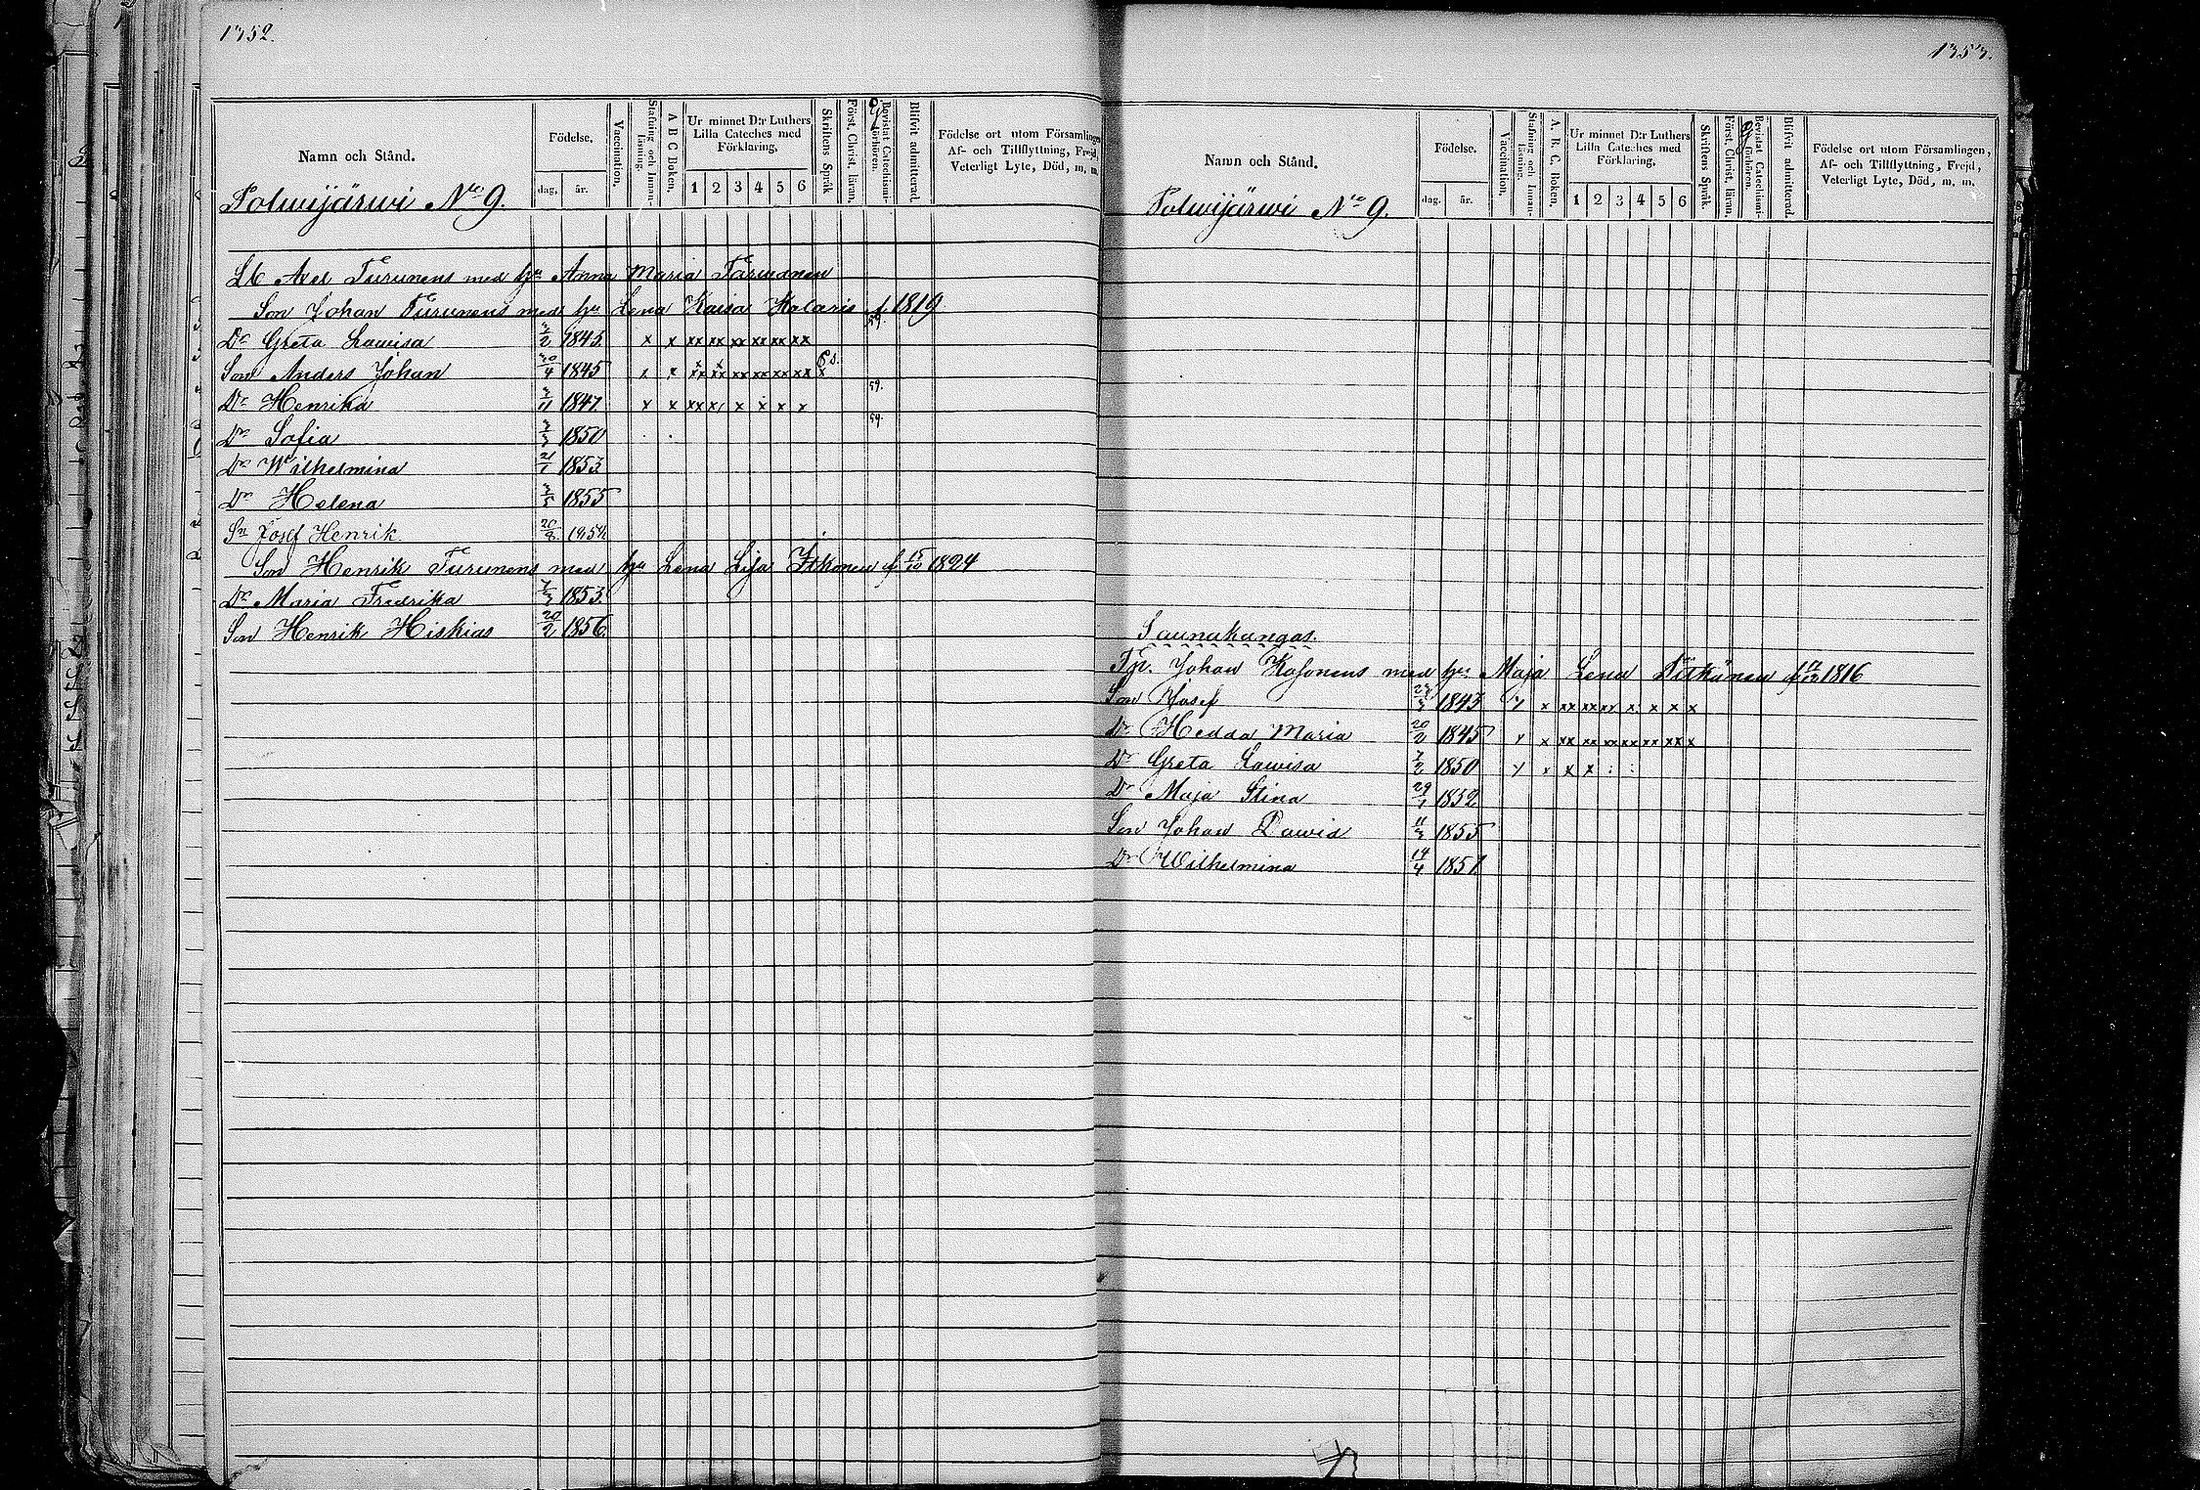 1352.
Namn och Stånd.
Födelse.
dag, år.
Vaccination.
Stafning och Innan-läsning.
A B C Boken.
Ur minnet D:r Luthers Lilla Cateches med Förklaring.
1 2 3 4 5 6
Skriftens Språk
Först. Christ. läran.
Bevistat Catechismi-förhören.
Blifvit admitterad.
Födelse ort utom Församlingen,
Af- och Tillflyttning, Frejd,
Veterligt Lyte, Död, m. m.
Polwijärwi No 9.
Lb Axel Turunens med hu Anna Maria
Son Johan Turunens med hu Lena Kaisa Kolaris f 1819
Dr Greta Lawisa 2 1843 x x xx xx xx xx xx xx 59.
Son Anders Johan 30/4 1845 x x xx xx xx xx xx xx x
Dr Henrika 11 1847 x x xx x x x x x 59.
Dr Sofia 1850 59.
Dr Wilhelmina 21/1 1853
Dr Helena 3/5 1855
Sn Josef Henrik 20
Son Henrik Turunens med hu Lena Lisa Itkonen f 15/10 1824
Dr Maria Fredrika 1853.
Son Henrik Hiskias 20/2 1856
1353.
Namn och Stånd.
Födelse.
dag. år.
Vaccination.
Stafning och Innan-läsning.
A. B. C. Boken.
Ur minnet D:r Luthers Lilla Cateches med Förklaring.
1 2 3 4 5 6
Skriftens Språk.
Först. Christ. läran.
Bevistat Catechismi-förhören.
Blifvit admitterad.
Födelse ort utom Församlingen,
Af- och Tillflyttning, Frejd,
Veterligt Lyte, Död, m. m.
Polwijärwi No 9.
Saunakangas.
Tp. Johan Kosonens med hu Maja Lena Pitkänen f 1816
Son Josef 1843 x x xx xx xx x x x x
Dr Hedda Maria 20/2 1845 x x xx xx xx xx xx xx x
Dr Greta Lawisa 1850 x x x x
Dr Maja Stina 29/1 1852
Son Johan Dawid 11/3 1855
Dr Wilhelmina 14/4 1857